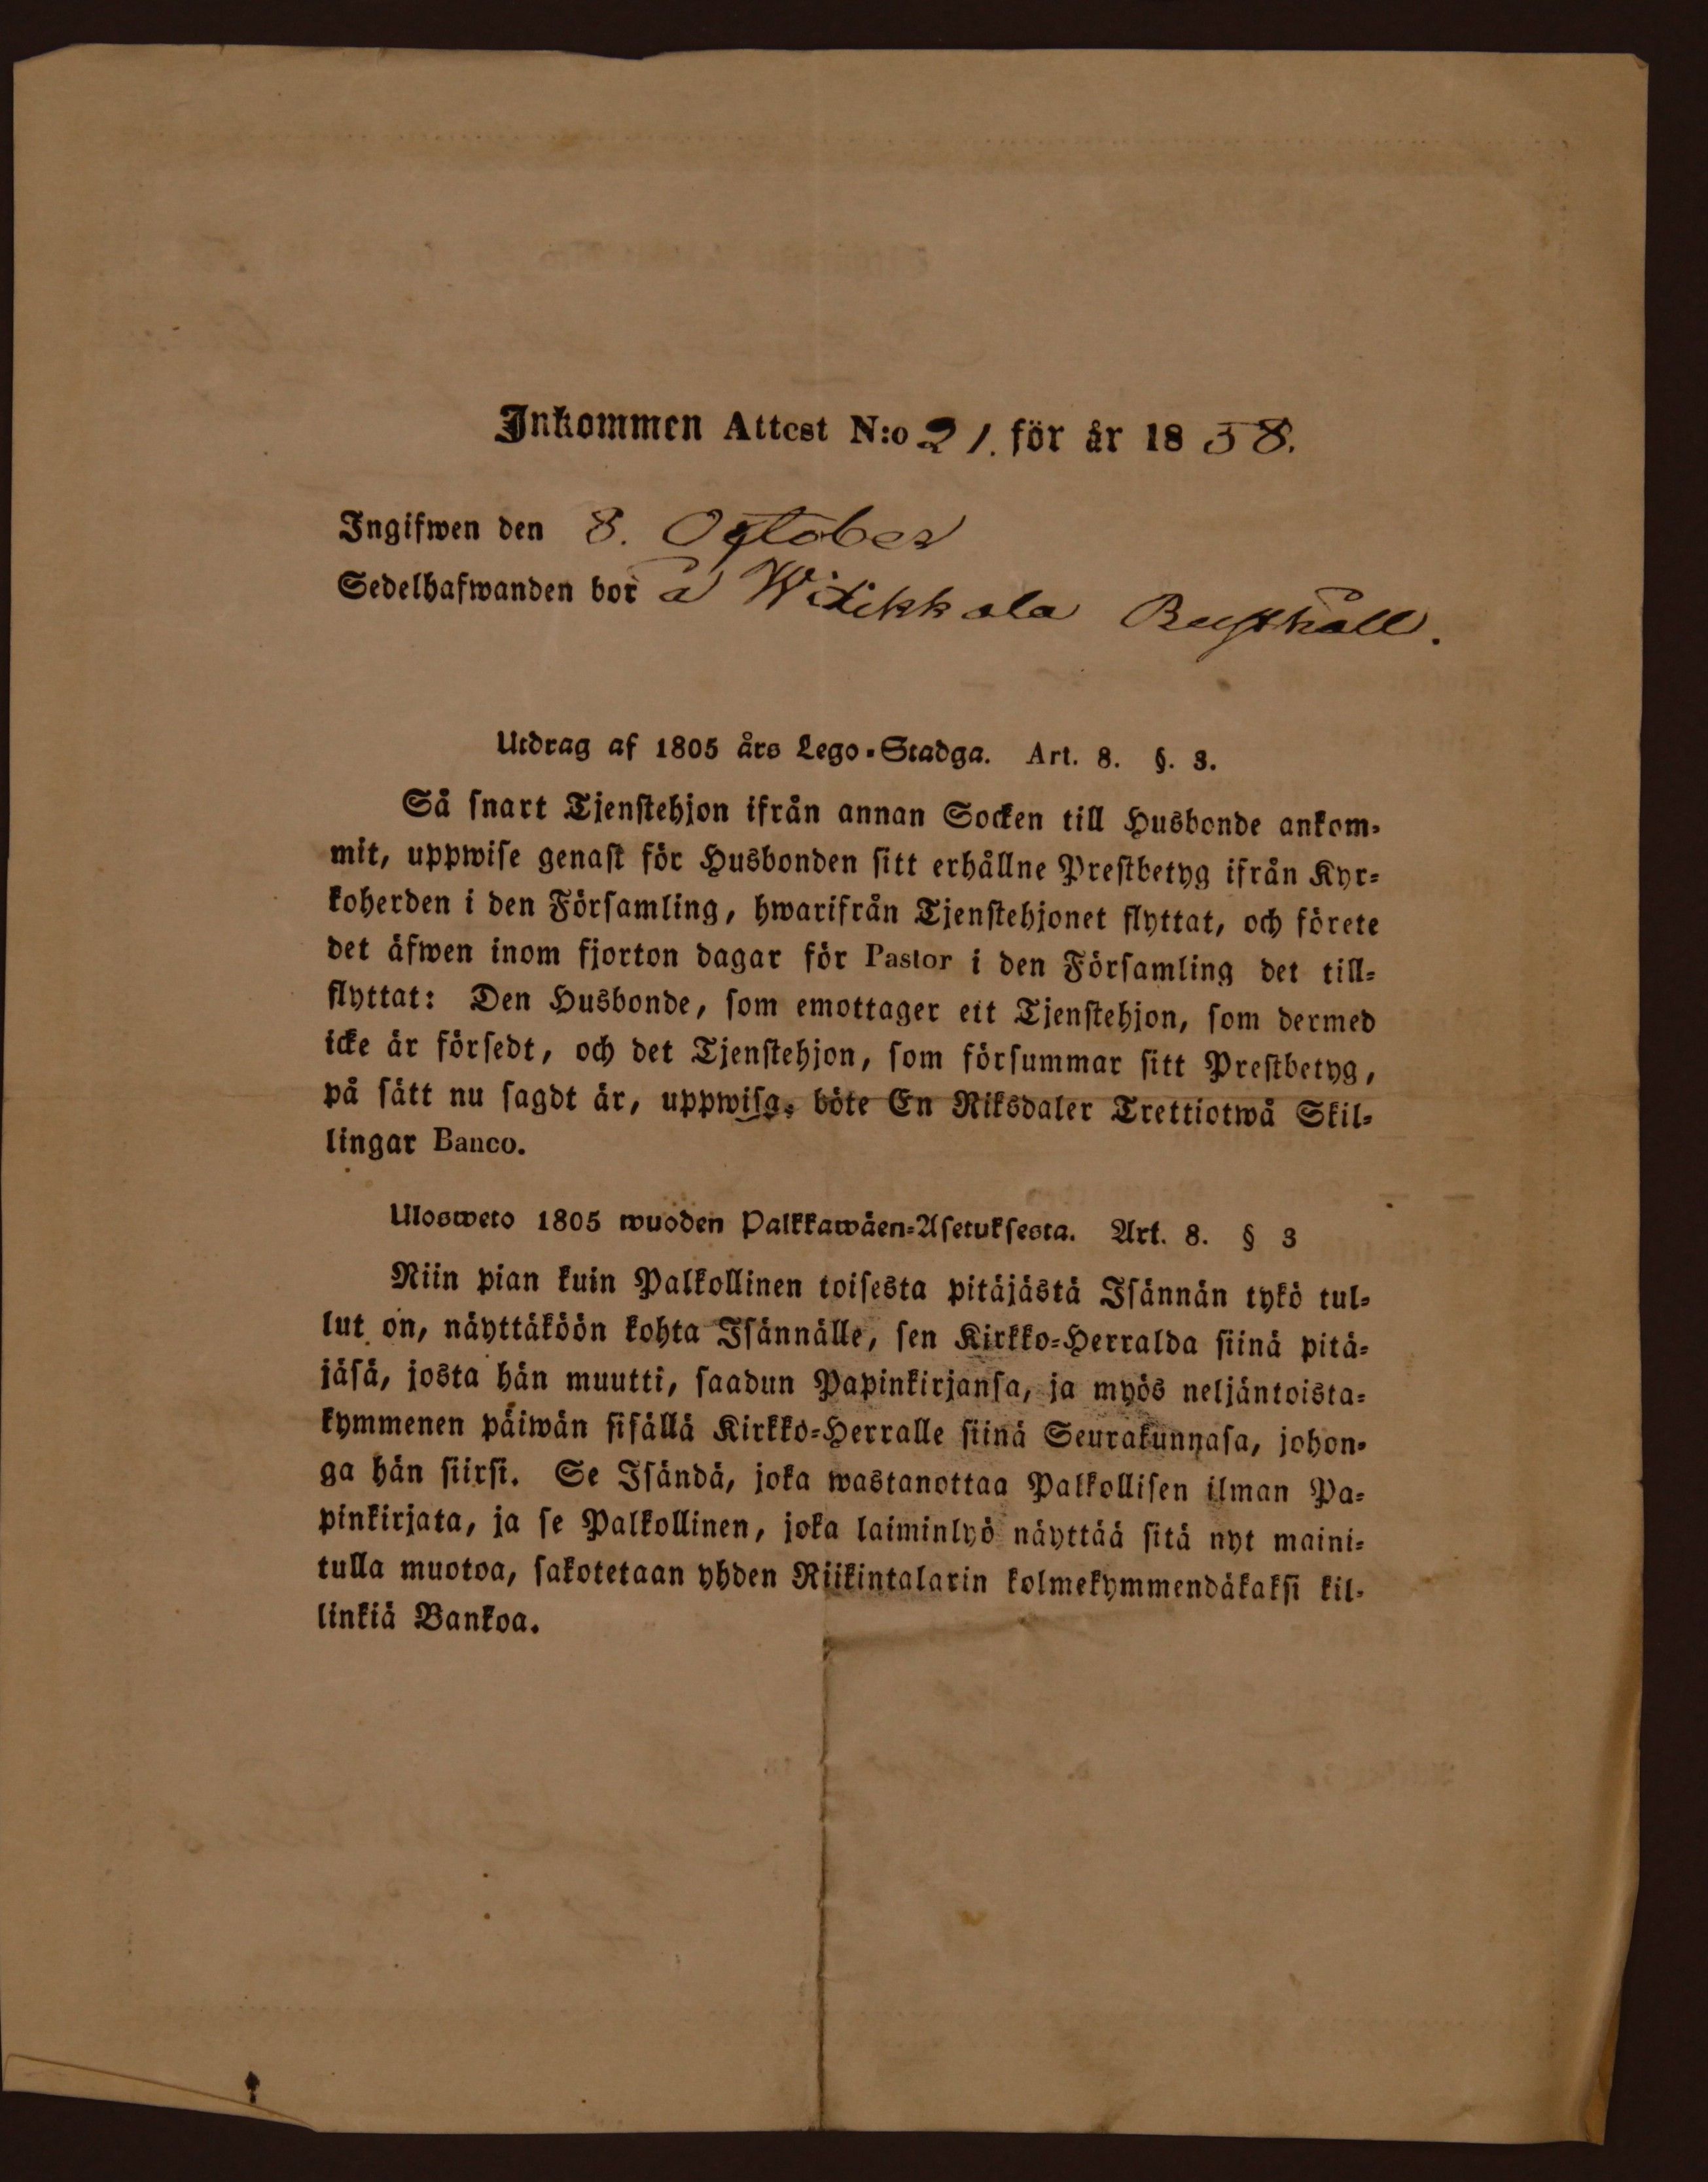 Inkommen Attest N:o 21. för år 1858.
Ingifwen den 8. October
Sedelhafwanden bor å Witikkala Rusthåll.
Utdrag af 1805 års Lego-Stadga. Art. 8. §. 3.
Så snart Tjenstehjon ifrån annan Socken till Husbonde ankom-
mit, uppwise genast för Husbonden sitt erhållne Prestbetyg ifrån Kyr-
koherden i den Församling, hwarifrån Tjenstehjonet flyttat, och förete
det äfwen inom fjorton dagar för Pastor i den Församling det till-
flyttat: Den Husbonde, som emottager ett Tjenstehjon, som dermed
icke är försedt, och det Tjenstehjon, som försummar sitt Prestbetyg,
på sätt nu sagdt är, uppwisa, böte En Riksdaler Trettiotwå Skil-
lingar Banco.
Ulosweto 1805 wuoden Palkkawäen-Asetuksesta. Art. 8. § 3
Niin pian kuin Palkollinen toisesta pitäjästä Isännän tykö tul-
lut on, näyttäköön kohta Isännälle, sen Kirkko-Herralda siinä pitä-
jäsä, josta hän muutti, saadun Papinkirjansa, ja myös neljäntoista-
kymmenen päiwän sisällä Kirkko-Herralle siinä Seurakunnasa, johon-
ga hän siirsi. Se Isändä, joka wastanottaa Palkollisen ilman Pa-
pinkirjata, ja se Palkollinen, joka laiminlyö näyttää sitä nyt maini-
tulla muotoa, sakotetaan yhden Riikintalarin kolmekymmendäkaksi kil-
linkiä Bankoa.